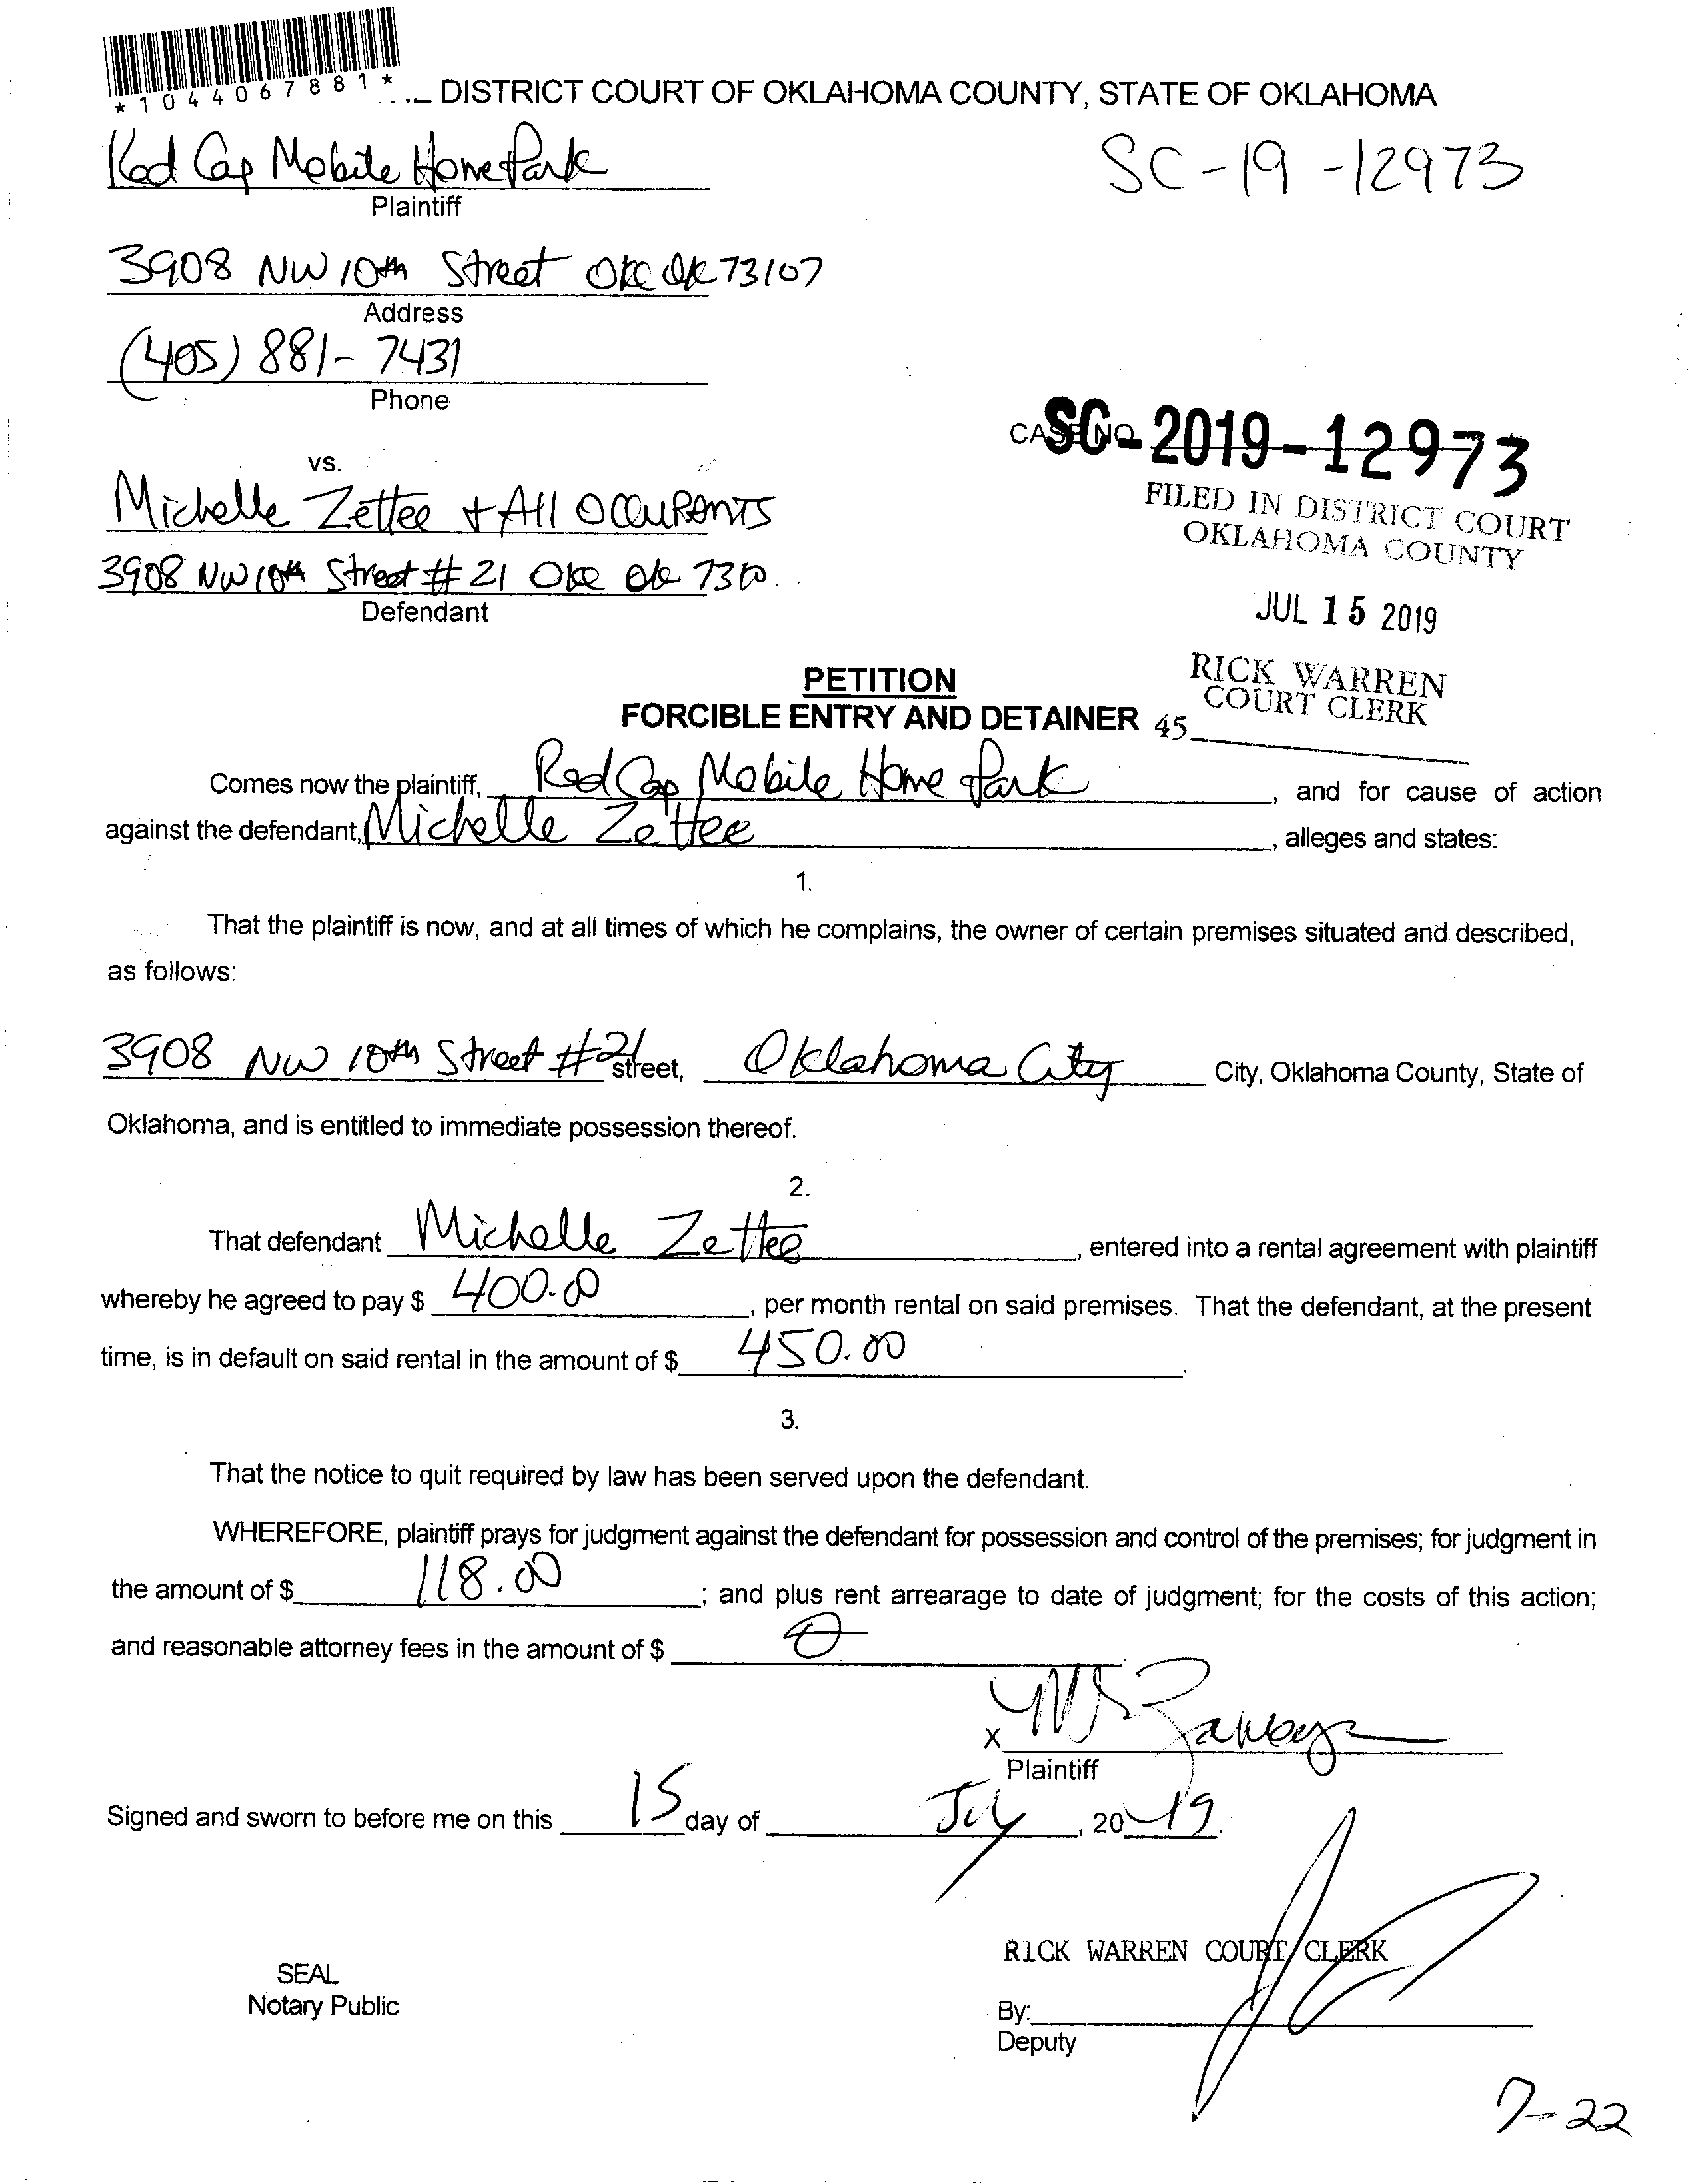 *1044067881*
DISTRICT COURT OF OKLAHOMA COUNTY, STATE OF OKLAHOMA
Red Cap Mobile Home Park
SC-19-12973
Plaintiff
3908 NW 10th Street OKC OK 73107
Address
(405) 881-7431
Phone
CASE NO. SC-2019-12973
vs.
FILED IN DISTRICT COURT
OKLAHOMA COUNTY
Michelle Zettee + All OCCUPANTS
3908 NW 10th Street # 21 OKC OK
Defendant
JUL 15 2019
RICK WARREN
COURT CLERK
PETITION
FORCIBLE ENTRY AND DETAINER
45
Comes now the plaintiff, Red Cap Mobile Home Park, and for cause of action
against the defendant, Michelle Zettee, alleges and states:
1.
That the plaintiff is now, and at all times of which he complains, the owner of certain premises situated and described,
as follows:
3908 NW 10th Street #21 street, Oklahoma City City, Oklahoma County, State of
Oklahoma, and is entitled to immediate possession thereof.
2.
That defendant Michelle Zettee, entered into a rental agreement with plaintiff
whereby he agreed to pay $ 400.00, per month rental on said premises. That the defendant, at the present
time, is in default on said rental in the amount of $ 450.00.
3.
That the notice to quit required by law has been served upon the defendant.
WHEREFORE, plaintiff prays for judgment against the defendant for possession and control of the premises; for judgment in
the amount of $ 118.00; and plus rent arrearage to date of judgment; for the costs of this action;
and reasonable attorney fees in the amount of $ 0
X
Plaintiff
Signed and sworn to before me on this 15 day of July, 2019.
RICK WARREN COURT CLERK
SEAL
Notary Public
By:
Deputy
7-22